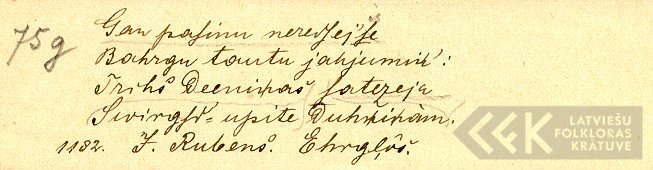 75g
Gan pasinu neredsejse
Bahrgu tautu jahjumiņ':
Trihs Deeniņas satezeja
Swirgst' upite Duhņiņām.
1182. J. Rubens. Ehrgļôs.
LATVIEŠU
FOLKLORAS
KRĀTUVE